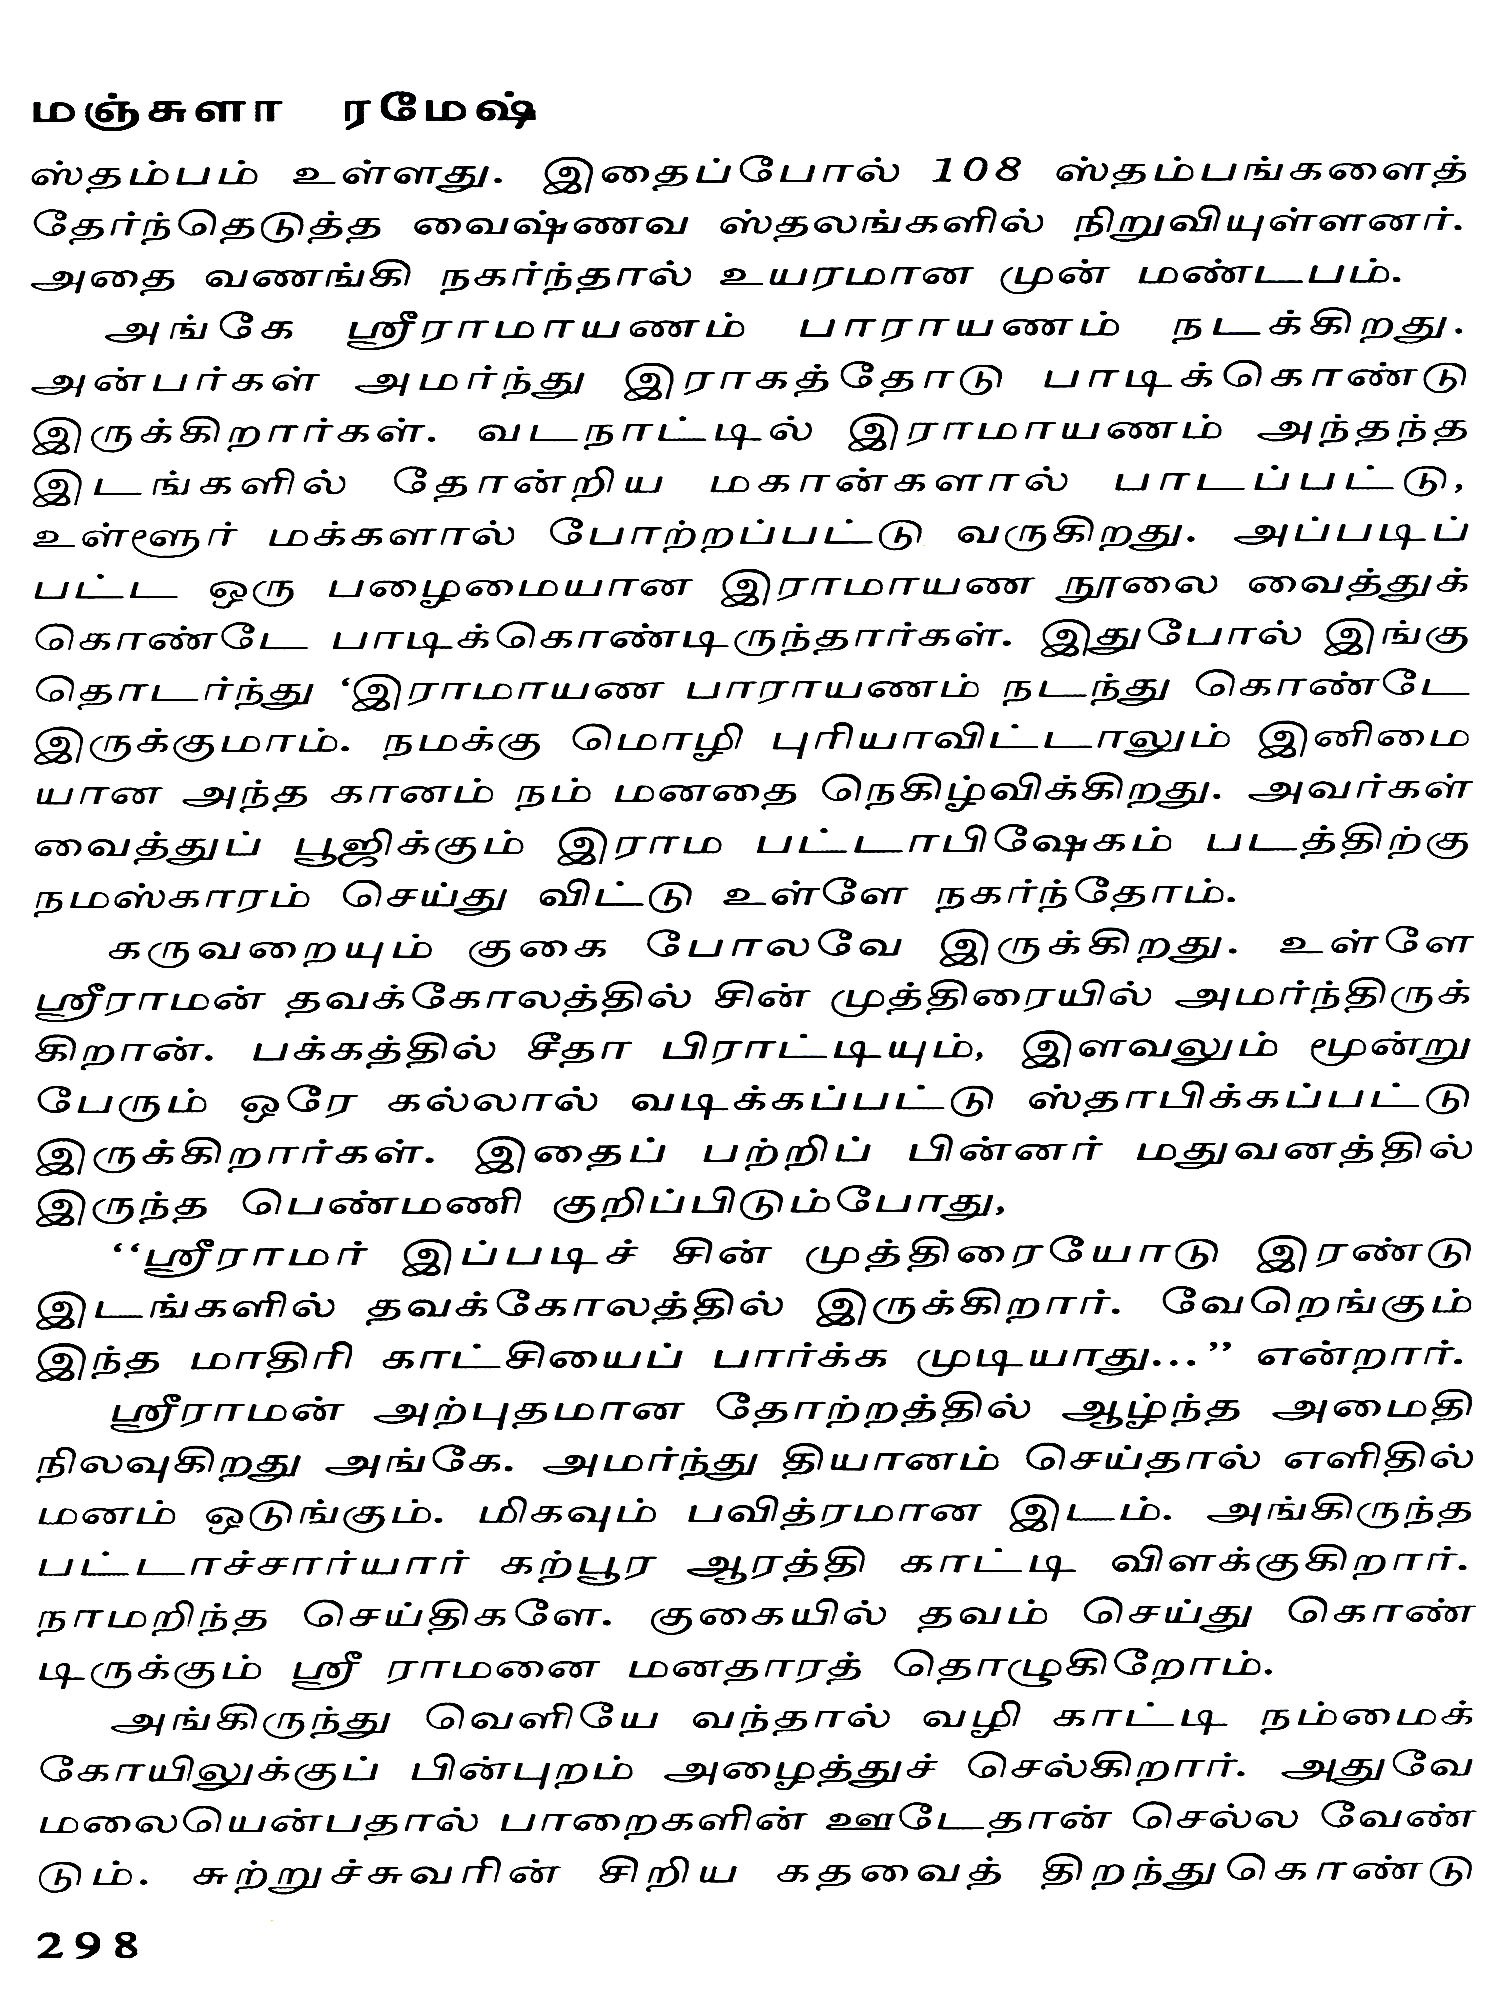 மஞ்சுளா ரமேஷ்
ஸ்தம்பம் உள்ளது. இதைப்போல் 108 ஸ்தம்பங்களைத்
தேர்ந்தெடுத்த வைஷ்ணவ ஸ்தலங்களில் நிறுவியுள்ளனர்.
அதை வணங்கி நகர்ந்தால் உயரமான முன் மண்டபம்.
அங்கே ஸ்ரீராமாயணம் பாராயணம் நடக்கிறது.
அன்பர்கள் அமர்ந்து இராகத்தோடு பாடிக்கொண்டு
இருக்கிறார்கள். வடநாட்டில் இராமாயணம் அந்தந்த
இடங்களில் தோன்றிய மகான்களால் பாடப்பட்டு,
உள்ளூர் மக்களால் போற்றப்பட்டு வருகிறது. அப்படிப்
பட்ட ஒரு பழைமையான இராமாயண நூலை வைத்துக்
கொண்டே பாடிக்கொண்டிருந்தார்கள். இதுபோல் இங்கு
தொடர்ந்து ‘இராமாயண பாராயணம் நடந்து கொண்டே
இருக்குமாம். நமக்கு மொழி புரியாவிட்டாலும் இனிமை
யான அந்த கானம் நம் மனதை நெகிழ்விக்கிறது. அவர்கள்
வைத்துப் பூஜிக்கும் இராம பட்டாபிஷேகம் படத்திற்கு
நமஸ்காரம் செய்து விட்டு உள்ளே நகர்ந்தோம்.
கருவறையும் குகை போலவே இருக்கிறது. உள்ளே
ஸ்ரீராமன் தவக்கோலத்தில் சின் முத்திரையில் அமர்ந்திருக்
கிறான். பக்கத்தில் சீதா பிராட்டியும், இளவலும் மூன்று
பேரும் ஒரே கல்லால் வடிக்கப்பட்டு ஸ்தாபிக்கப்பட்டு
இருக்கிறார்கள். இதைப் பற்றிப் பின்னர் மதுவனத்தில்
இருந்த பெண்மணி குறிப்பிடும்போது,
‘‘ஸ்ரீராமர் இப்படிச் சின் முத்திரையோடு இரண்டு
இடங்களில் தவக்கோலத்தில் இருக்கிறார். வேறெங்கும்
இந்த மாதிரி காட்சியைப் பார்க்க முடியாது...’’ என்றார்.
ஸ்ரீராமன் அற்புதமான தோற்றத்தில் ஆழ்ந்த அமைதி
நிலவுகிறது அங்கே. அமர்ந்து தியானம் செய்தால் எளிதில்
மனம் ஒடுங்கும். மிகவும் பவித்ரமான இடம். அங்கிருந்த
பட்டாச்சார்யார் கற்பூர ஆரத்தி காட்டி விளக்குகிறார்.
நாமறிந்த செய்திகளே. குகையில் தவம் செய்து கொண்
டிருக்கும் ஸ்ரீ ராமனை மனதாரத் தொழுகிறோம்.
அங்கிருந்து வெளியே வந்தால் வழி காட்டி நம்மைக்
கோயிலுக்குப் பின்புறம் அழைத்துச் செல்கிறார். அதுவே
மலையென்பதால் பாறைகளின் ஊடேதான் செல்ல வேண்
டும். சுற்றுச்சுவரின் சிறிய கதவைத் திறந்துகொண்டு
298